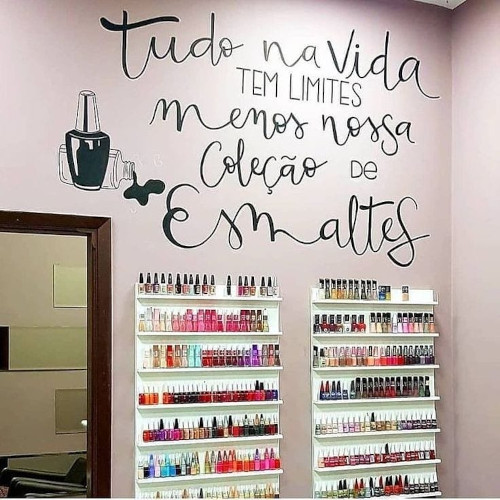 Tudo na Vida
TEM LIMITES
menos nossa
Coleção DE
Esmaltes